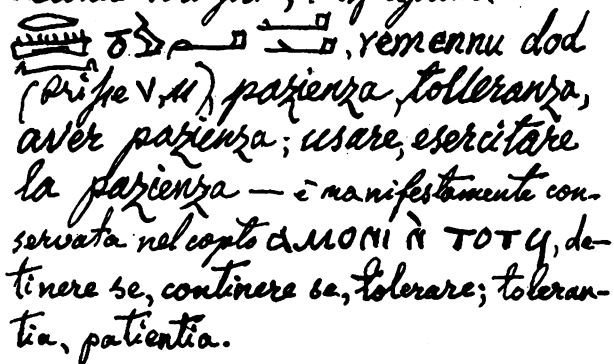 , remennu dod
(Prisse V, 11) pazienza, tolleranza,
aver pazienza; usare, esercitare
la pazienza — è manifestamente con-
servata nel copto ⲁⲙⲟⲛⲓ ⲛ̀ ⲧⲟⲧϥ, de-
tinere se, continere se, tolerare; toleran-
tia, patientia.